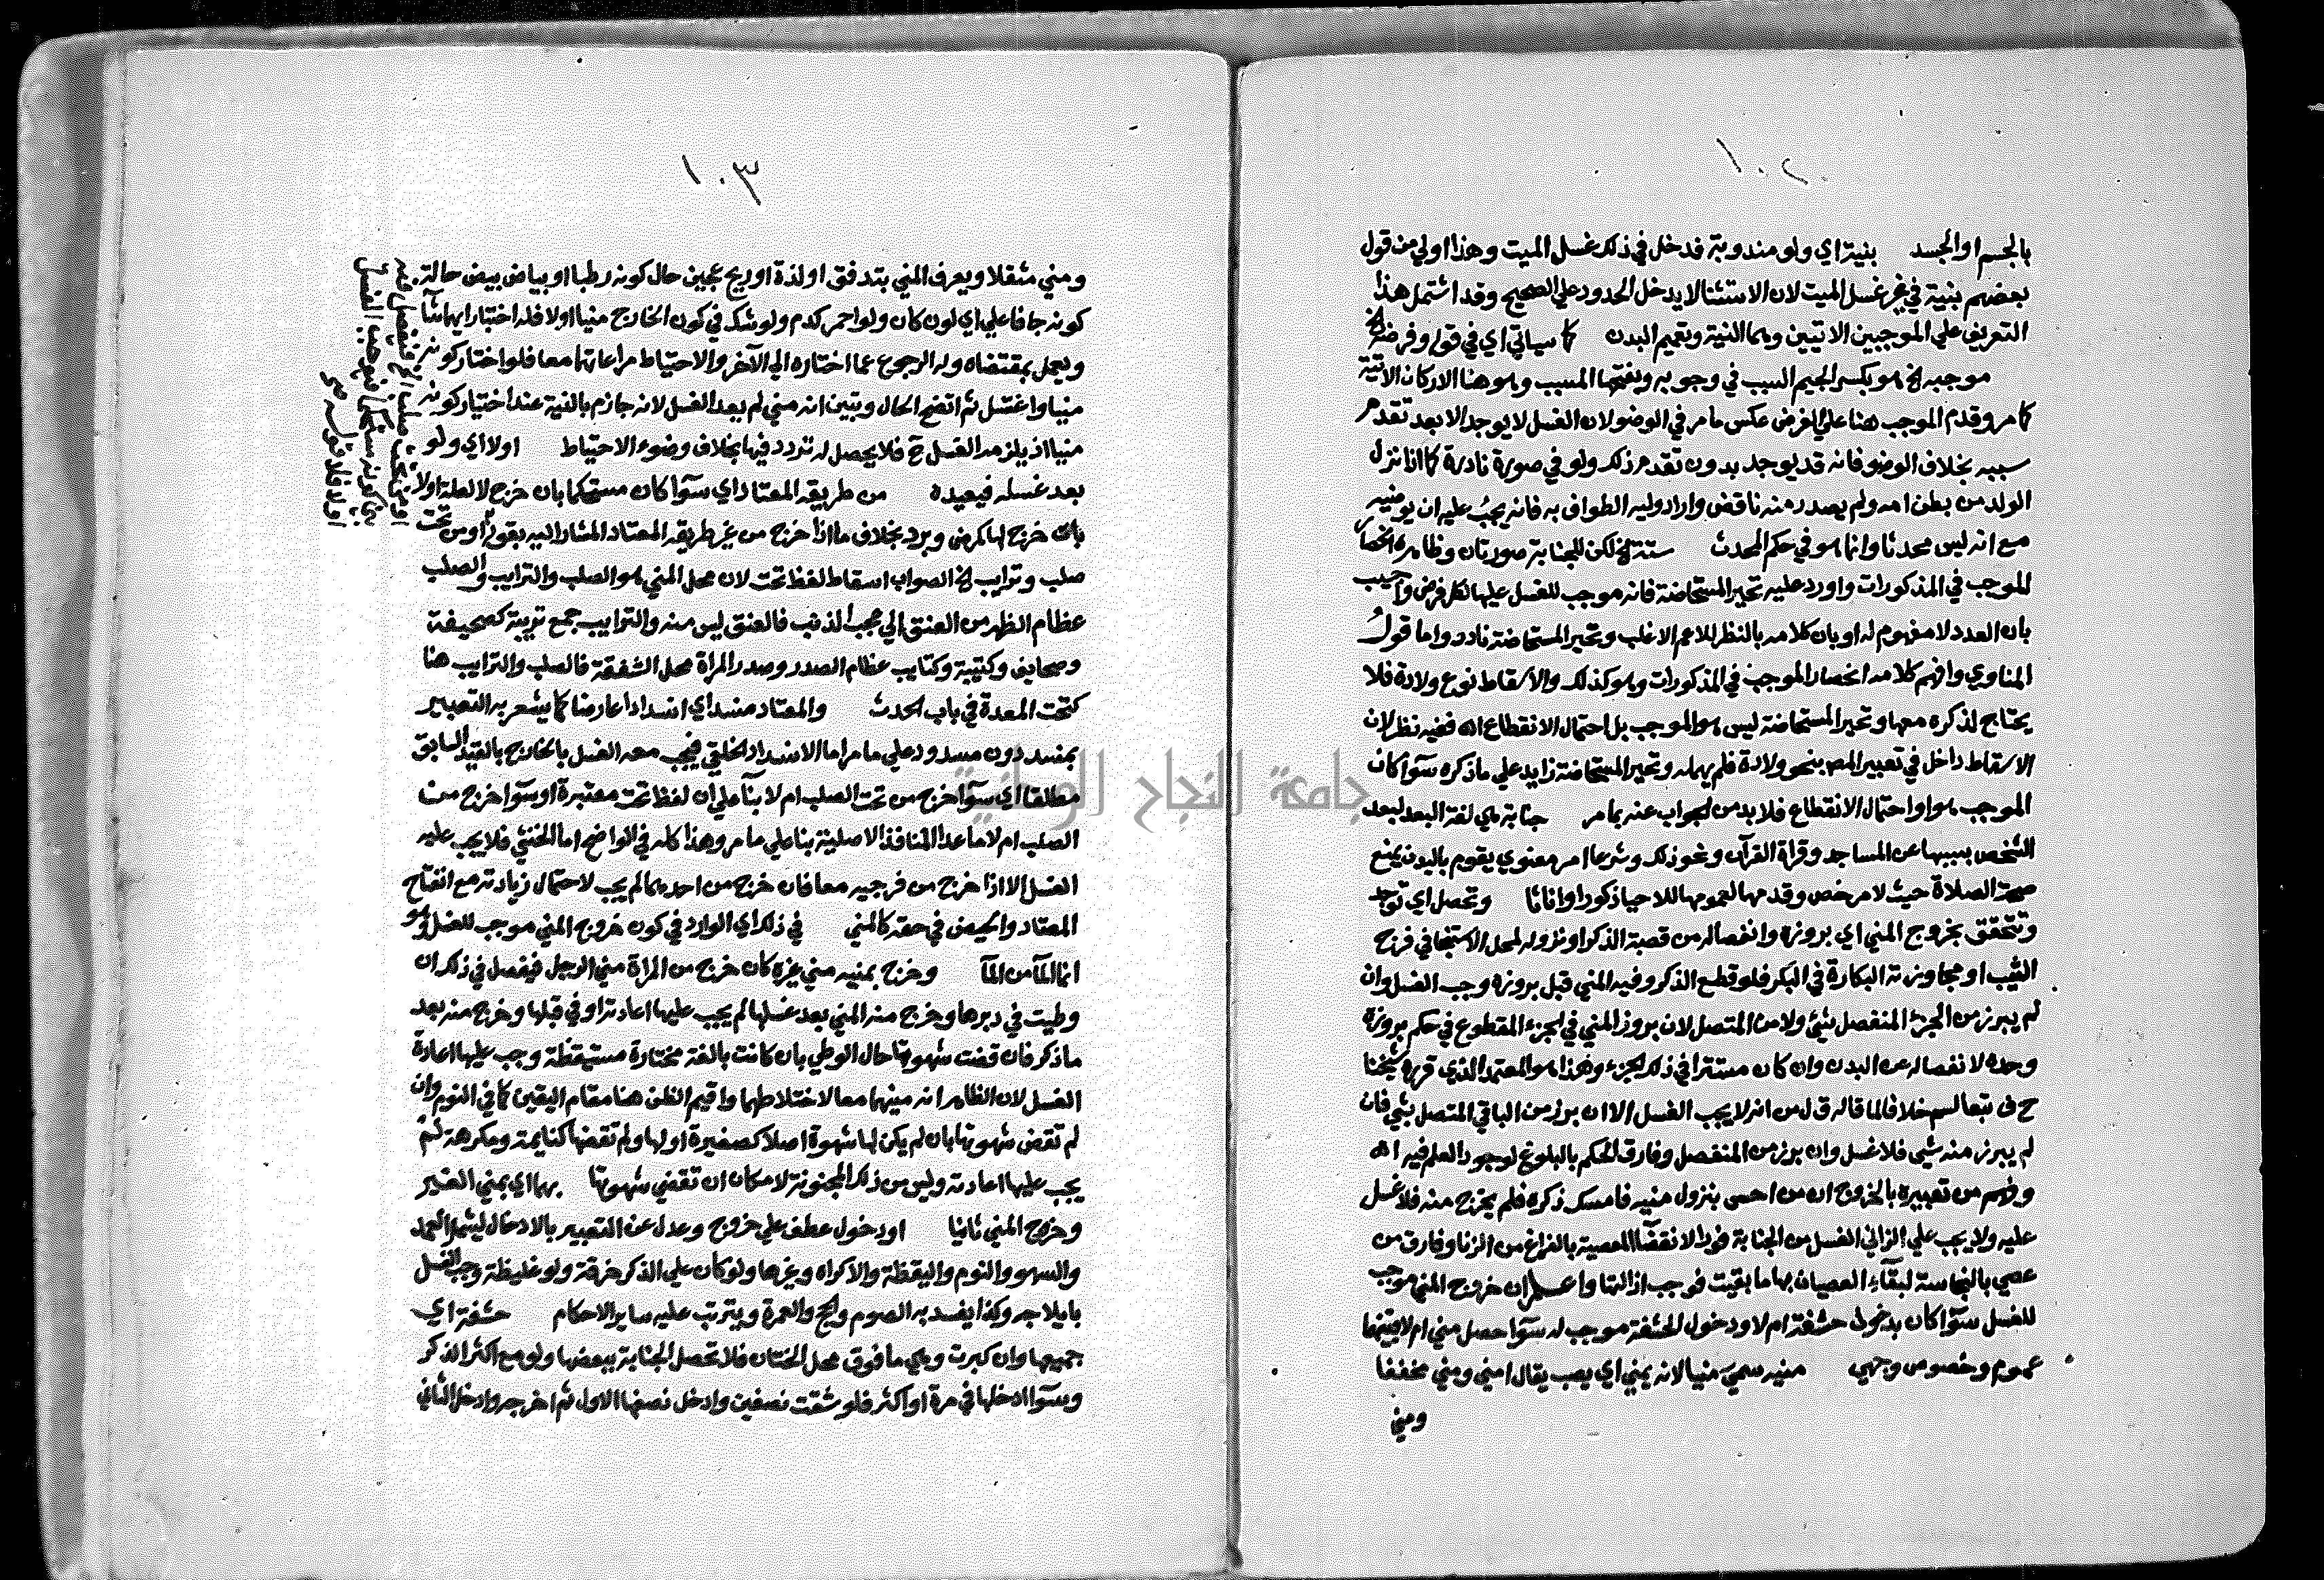 ١٠٢
بالجسم او الجسد بنية اي ولو مندوبة فدخل في ذلك غسل الميت وهذا اولي من قول
بعضهم بنية في غير غسل الميت لان الاستثنا لا يدخل الحدود علي الصحيح وقد اشتمل هذا
التعريف علي الموجبين الاتيين وهما النية وتعميم البدن كما سياتي اي في قوله وفرضه الخ
موجبه الخ هو بكسر الجيم السبب في وجوبه وبفتحها المسبب وهو هنا الاركان الاتية
كما مر وقدم الموجب هنا علي الفرض عكس ما مر في الوضو لان الغسل لا يوجد الا بعد تقدم
سببه بخلاف الوضو فانه قد يوجد بدون تقدم ذلك ولو في صورة نادرة كما اذا نزل
الولد من بطن امه ولم يصدر منه ناقض واراد وليه الطواف به فانه يجب عليه ان يوضيه
مع انه ليس محدثا وانما هو في حكم المحدث ستة الخ لكن للجنابة صورتان وظاهره انحصار
الموجب في المذكورات واورد عليه تحير المستحاضة فانه موجب للغسل عليها لكل فرض واجيب
بان العدد لا مفهوم له او بان كلامه بالنظر للاعم الاغلب وتحير المستحاضة نادر واما قول
المناوي وافهم كلامه انحصار الموجب في المذكورات وهو كذلك والاسقاط نوع ولادة فلا
يحتاج لذكره معها وتحير المستحاضة ليس هو الموجب بل احتمال الانقطاع اه ففيه نظر لان
الاسقاط داخل في تعبير المص بنحو ولادة فلم يهمله وتحير المستحاضة زايد علي ما ذكره سوآ كان
الموجب هو او احتمال الانقطاع فلا بد من الجواب عنه بما مر جنابة هي لغة البعد لبعد
الشخص بسببها عن المساجد وقراة القرآن ونحو ذلك وشرعا امر معنوي يقوم بالبدن يمنع
صحة الصلاة حيث لا مرخص وقدمها لعمومها للاحيا ذكورا واناثا وتحصل اي توجد
وتتحقق بخروج المني اي بروزه وانفصاله من قصبة الذكر او نزوله لمحل الاستنجا في فرج
الثيب او مجاوزته البكارة في البكر فلو قطع الذكر وفيه المني قبل بروزه وجب الغسل وان
لم يبرز من الجزء المنفصل شيئ ولا من المتصل لان بروز المني في الجزء المقطوع في حكم بروزه
وحده لانفصاله عن البدن وان كان مستترا في ذلك الجزء وهذا هو المعتمد الذي قرره شيخنا
ح ف تبعا لسم خلافا لما قاله ق ل من انه لا يجب الغسل الا ان برز من الباقي المتصل شي فان
لم يبرز منه شي فلا غسل وان برز من المنفصل وفارق الحكم بالبلوغ لوجود العلم فيه اه
وفهم من تعبيره بالخروج ان من احس بنزول منيه فامسك ذكره فلم يخرج منه فلا غسل
عليه ولا يجب علي الزاني الغسل من الجنابة فورا لانقضآ المعصية بالفراغ من الزنا وفارق من
عصي بالنجاسة لبقآء العصيان بها ما بقيت فوجب ازالتها واعلم ان خروج المني موجب
للغسل سوآ كان بدخول حشفة ام لا ودخول الحشفة موجب له سوآ حصل مني ام لا فبينهما
عموم وخصوص وجهي منيه سمي منيا لانه يمني اي يصب يقال امني ومني مخففا
ومني
١٠٣
ومني مثقلا ويعرف المني بتدفق او لذة او ريح عجين حال كونه رطبا او بياض بيض حالة
كونه جافا علي اي لون كان ولو احمر كدم ولو شك في كون الخارج منيا اولا فله اختيار ايهما شآ
ويعمل بمقتضاه وله الرجوع عما اختاره الي الآخر والاحتياط مراعاتهما معا فلو اختار كونه
منيا واغتسل ثم اتضح الحال وتبين انه مني لم يعد الغسل لانه جازم بالنية عند اختيار كونه
منيا اذ يلزمه الغسل ح فلا يحصل له تردد فيها بخلاف وضوء الاحتياط اولا اي ولو
بعد غسله فيعيده من طريقه المعتاد اي سوآ كان مستحكما بان خرج لا لعلة اولا
بان خرج لها كمرض وبرد بخلاف ما اذا خرج من غير طريقه المعتاد المشار اليه بقوله او من تحت
صلب وترايب الخ الصواب اسقاط لفظ تحت لان محل المني هو الصلب والترايب والصلب
عظام الظهر من العنق الي عجب الذنب فالعنق ليس منه والترايب جمع تريبة كصحيفة
وصحايف وكتيبة وكتايب عظام الصدر وصدر المراة محل الشفقة فالصلب والترايب هنا
كتحت المعدة في باب الحدث والمعتاد منسد اي انسدادا عارضا كما يشعر به التعبير
بمنسد دون مسدود علي ما مر اما الانسداد الخلقي فيجب معه الغسل بالخارج بالقيد السابق
مطلقا اي سوآ خرج من تحت الصلب ام لا بنآ علي ان لفظ تحت معتبرة او سوآ خرج من
الصلب ام لا ما عدا المنافذ الاصلية بنا علي ما مر وهذا كله في الواضح اما الخنثي فلا يجب عليه
الغسل الا اذا خرج من فرجيه معا فان خرج من احدهما لم يجب لاحتمال زيادته مع انفتاح
المعتاد والحيض في حقه كالمني في ذلك اي الوارد في كون خروج المني موجب للغسل وهو
انما المآ من المآ وخرج بمنيه مني غيره كان خرج من المراة مني الرجل فيفصل في ذلك ان
وطيت في دبرها وخرج منه المني بعد غسلها لم يجب عليها اعادته او في قبلها وخرج منه بعد
ما ذكر فان قضت شهوتها حال الوطي بان كانت بالغة مختارة مستيقظة وجب عليها اعادة
الغسل لان الظاهر انه منيهما معا لاختلاطهما واقيم الظن هنا مقام اليقين كما في النوم وان
لم تقض شهوتها بان لم يكن لها شهوة اصلا كصغيرة او لها ولم تقضها كنايمة ومكرهة لم
يجب عليها اعادته وليس من ذلك المجنونة لامكان ان تقضي شهوتها بها اي بمني الغير
وخروج المني ثانيا او دخول عطف علي خروج وعدل عن التعبير بالادخال ليشمل العمد
والسهو والنوم واليقظة والاكراه وغيرها ولو كان علي الذكر خرقة ولو غليظة وجب الغسل
بايلاجه وكذا يفسد به الصوم والحج والعمرة ويترتب عليه ساير الاحكام حشفة اي
جميعها وان كبرت وهي ما فوق محل الختان فلا تحصل الجنابة ببعضها ولو مع اكثر الذكر
وسوآ ادخلها في مرة او اكثر فلو شقت نصفين وادخل نصفها الاول ثم اخرجه وادخل الثاني
جامعة النجاح الوطنية